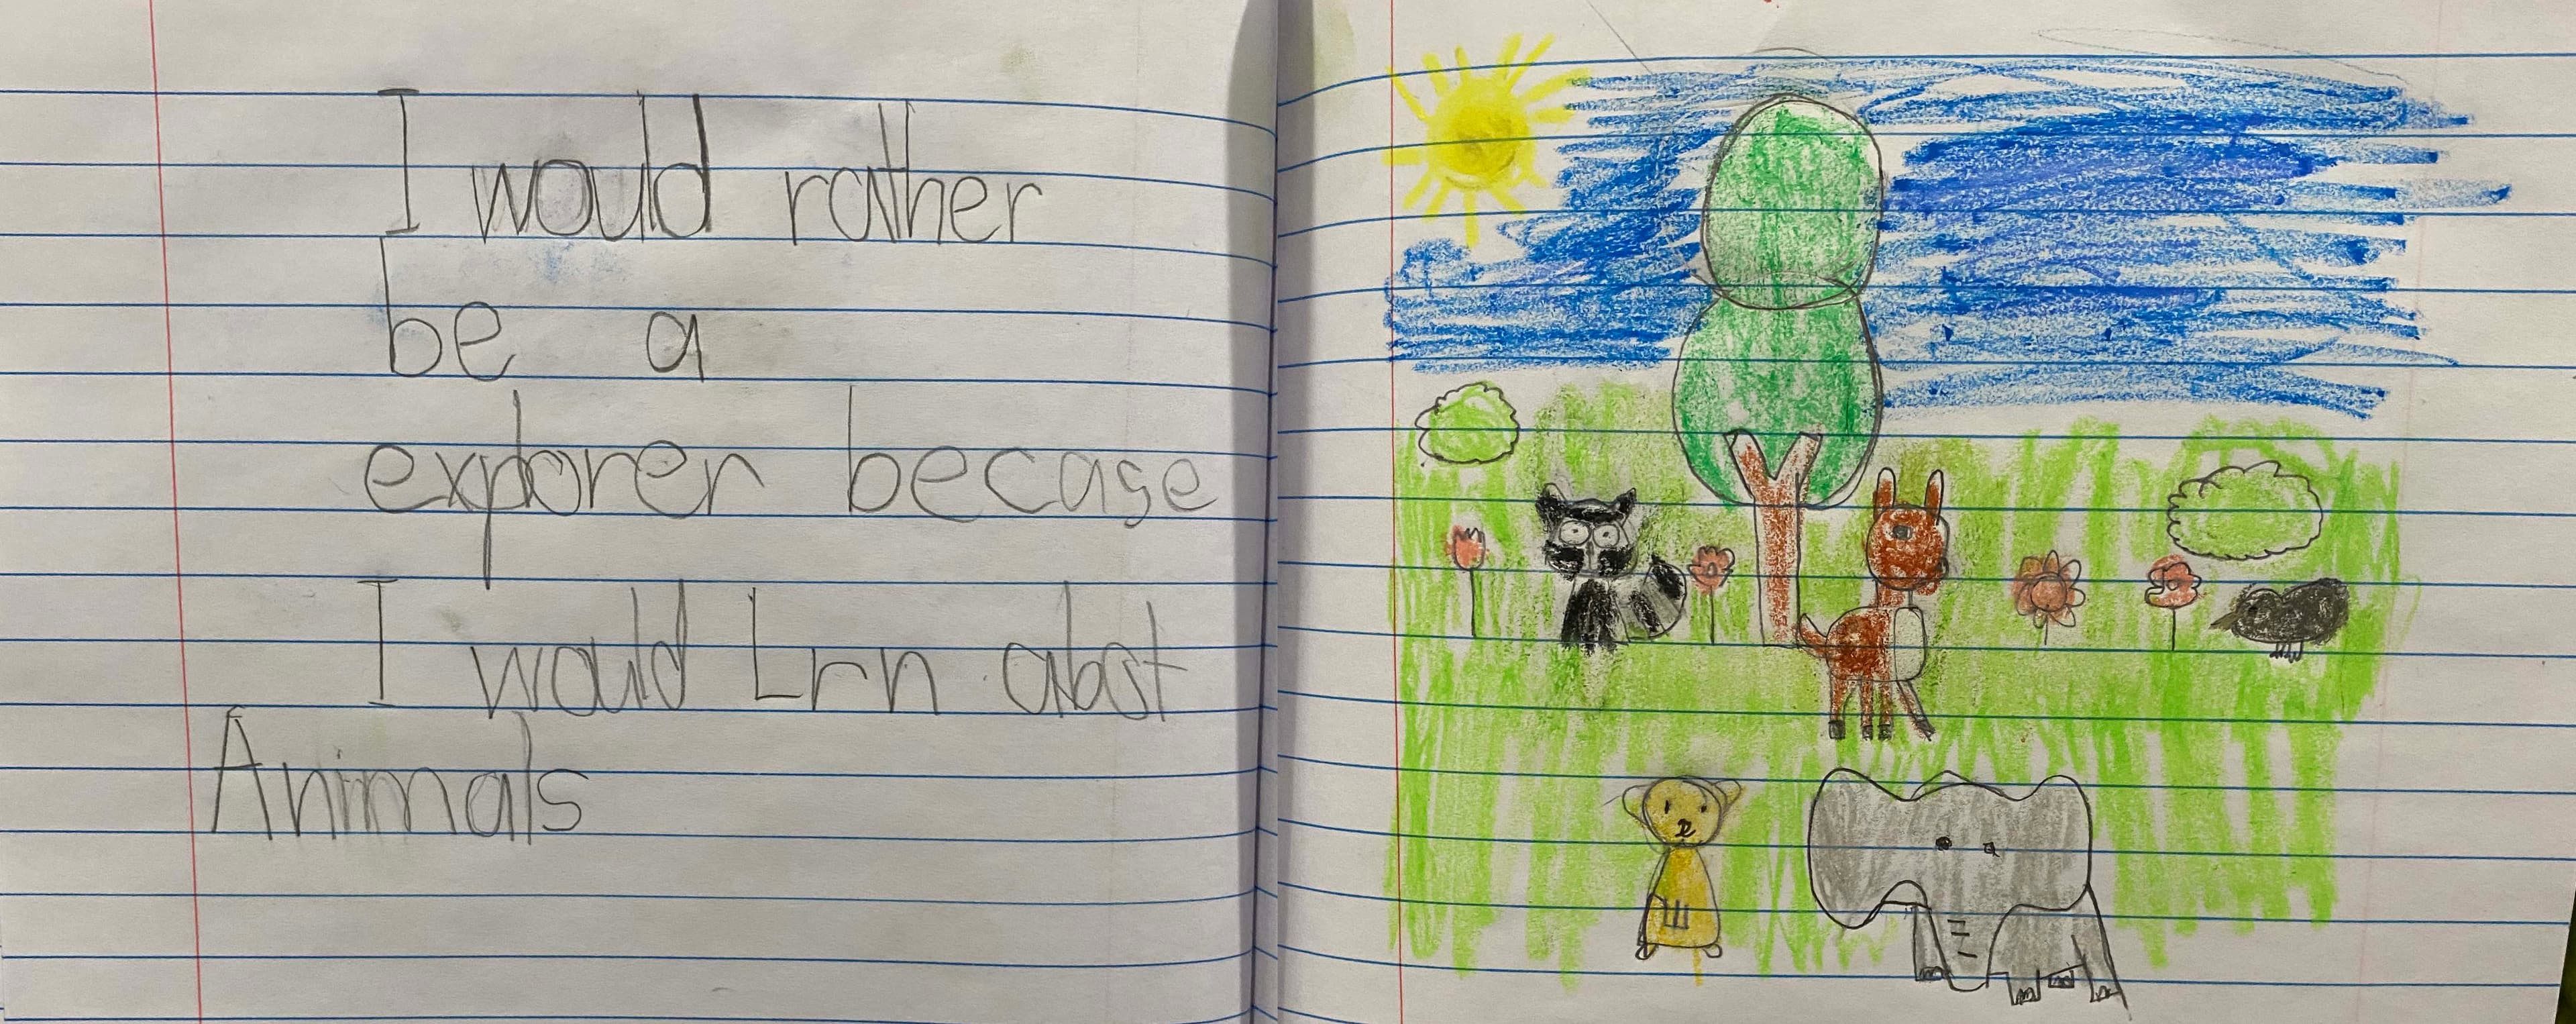 I would rather
be a
explorer becase
I would Lrn abot
Animals